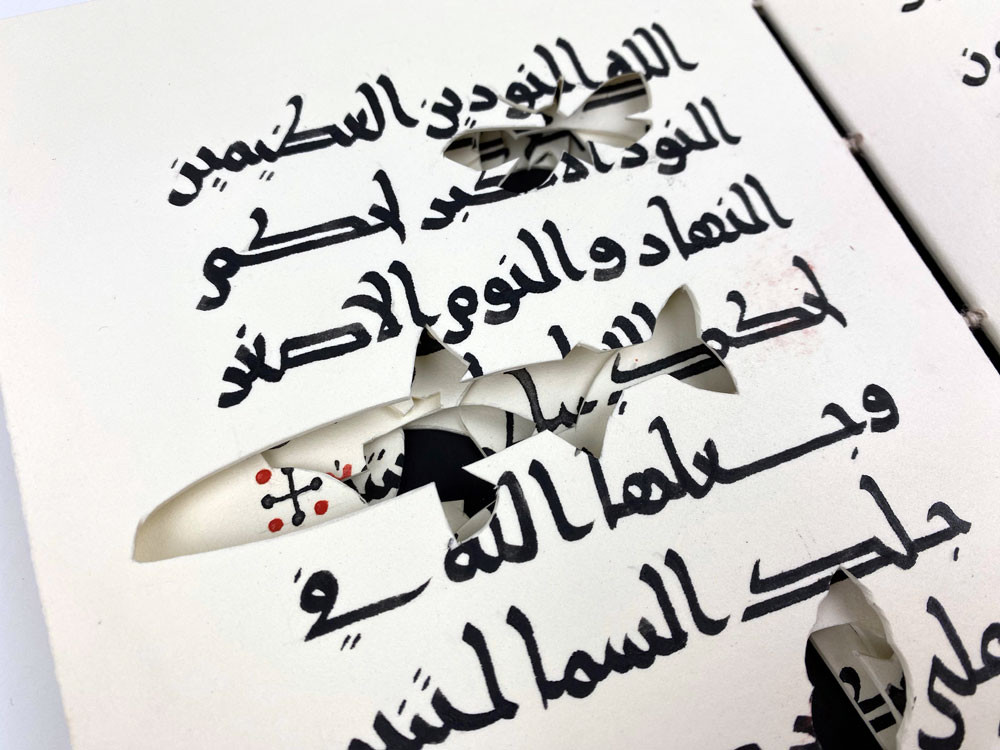 الله النورين العظيمين
النور الاكبر لحكم
النهار و النور الاصغر
لحكم
وجعلها الله في
جلد السما لتنير
على